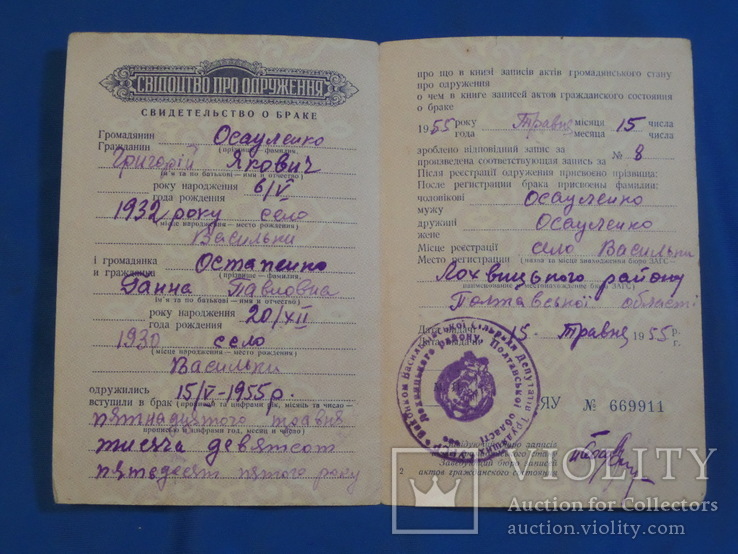 СВІДОЦТВО ПРО ОДРУЖЕННЯ
СВИДЕТЕЛЬСТВО О БРАКЕ
Громадянин Осауленко
Гражданин (прізвище - фамилия,
Григорій Якович
ім'я та по батькові — имя и отчество)
року народження 6/V
года рождения
1932 року село
(місце народження — место рождения)
Васильки
і громадянка Остапенко
и гражданка (прізвище — фамилия,
Ганна Павловна
ім'я та по батькові — имя и отчество)
року народження 20/XII
года рождения
1930 село
(місце народження — место рождения)
Васильки
одружились 15/V-1955р.
вступили в брак (прописом та цифрами рік, місяць та число —
п'ятнадцятого травня
прописью и цифрами год, месяц и число)
тисяча девятсот
п'ятдесят п'ятого року
про що в книзі записів актів громадянського стану
про одруження
о чем в книге записей актов гражданского состояния
о браке
1955 року Травня місяця 15 числа
года месяца числа
зроблено відповідний запис за № 8
произведена соответствующая запись за
Після реєстрації одруження присвоєно прізвища:
После регистрации брака присвоены фамилии:
чоловікові Осауленко
мужу
дружині Осауленко
жене
Місце реєстрації село Васильки
Место регистрации (назва та місце знаходження бюро ЗАГС —
Лохвицького району
наименование и местонахождение бюро ЗАГС)
Полтавської області
Дата видачі 15 Травня 1955 р.
Дата выдачи г.
ЯУ № 669911
Завідуючий бюро записів
актів громадянського стану
Заведующий бюро записей
актов гражданского состояния
2
VIOLITY
Auction for Collectors
auction.violity.com